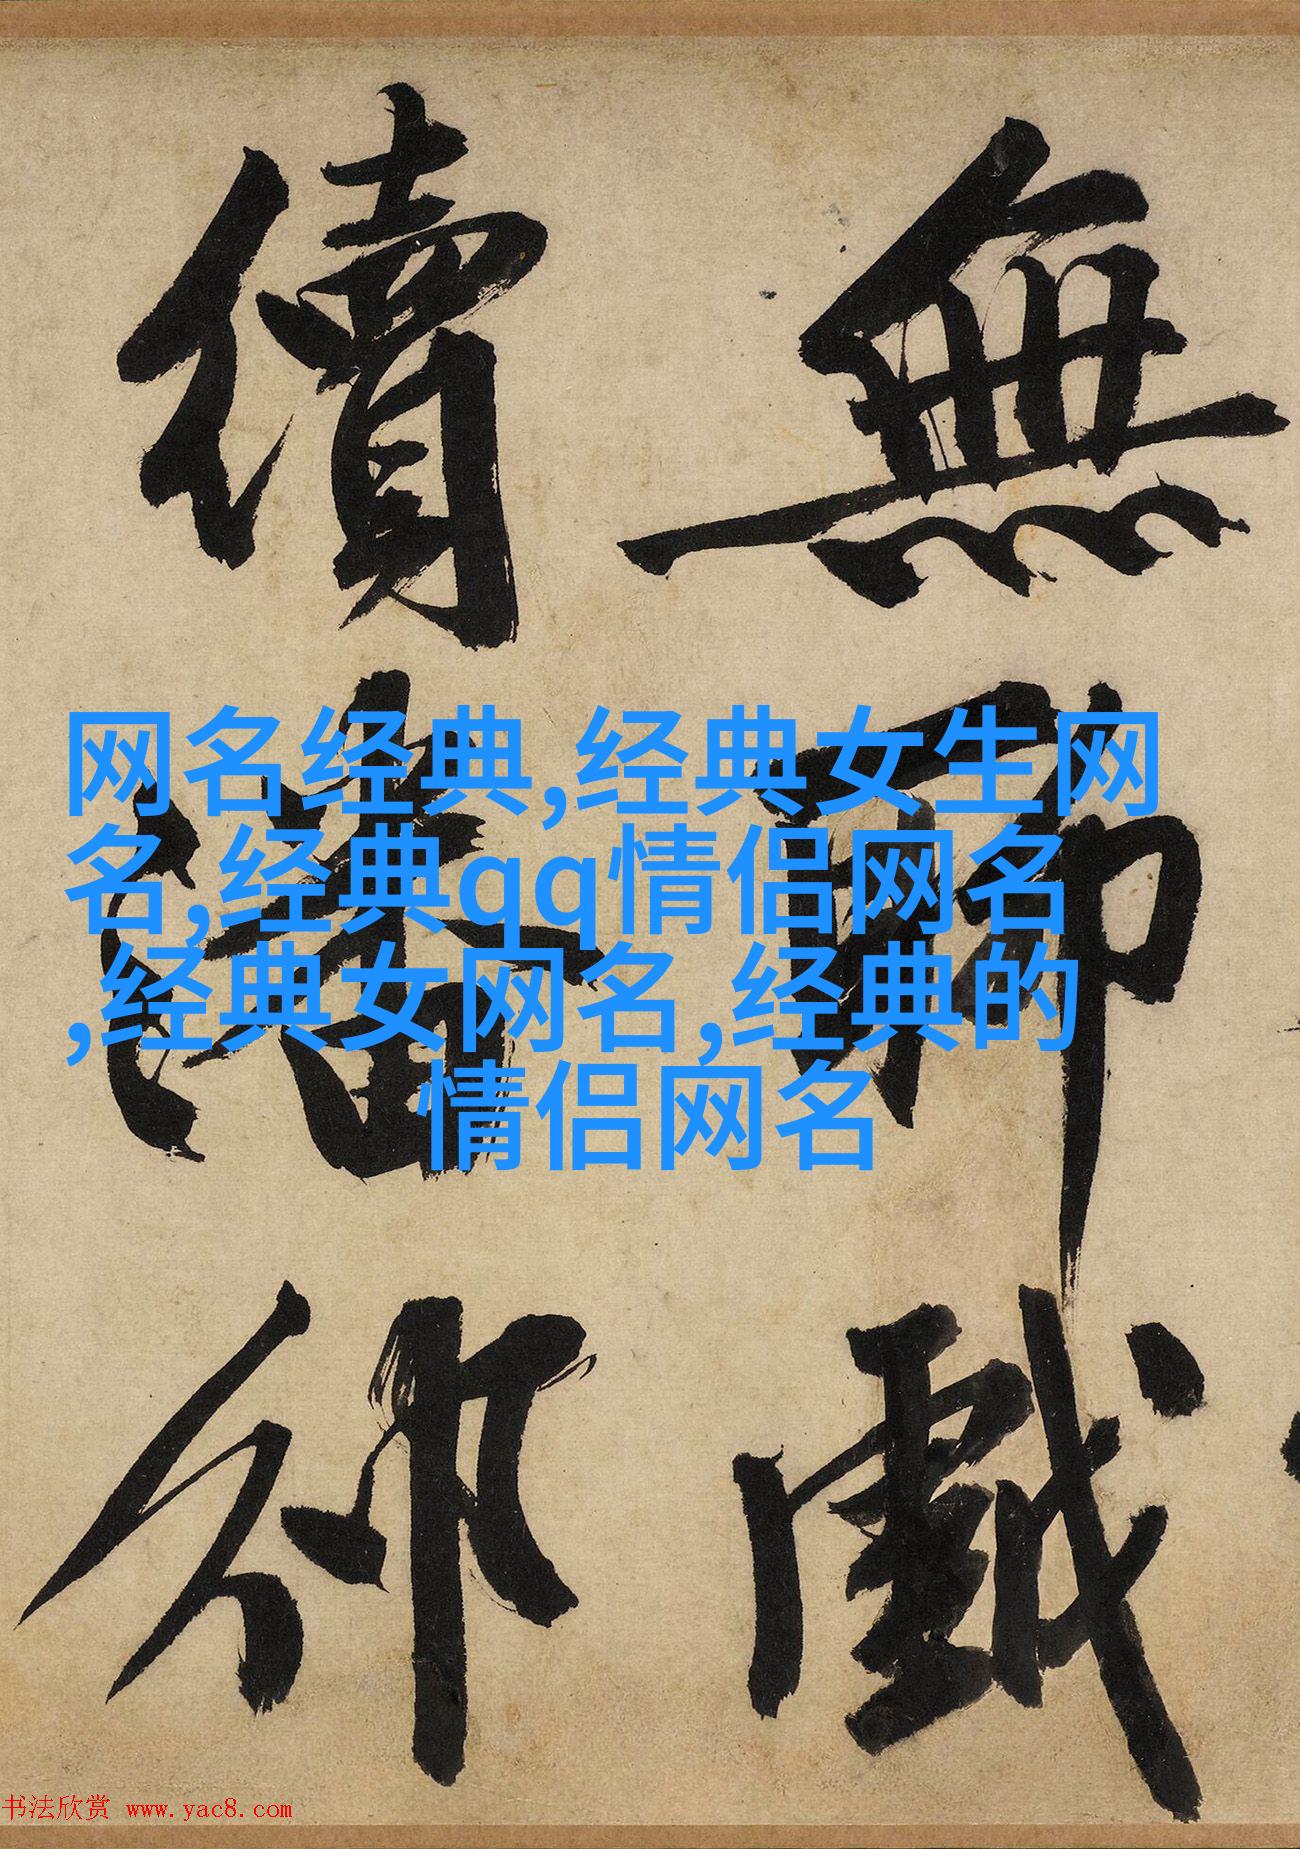 無聊戲
續潘邠
网名经典,经典女生网
名,经典qq情侣网名
,经典女网名,经典的
情侣网名
书法欣赏 www.yac8.com